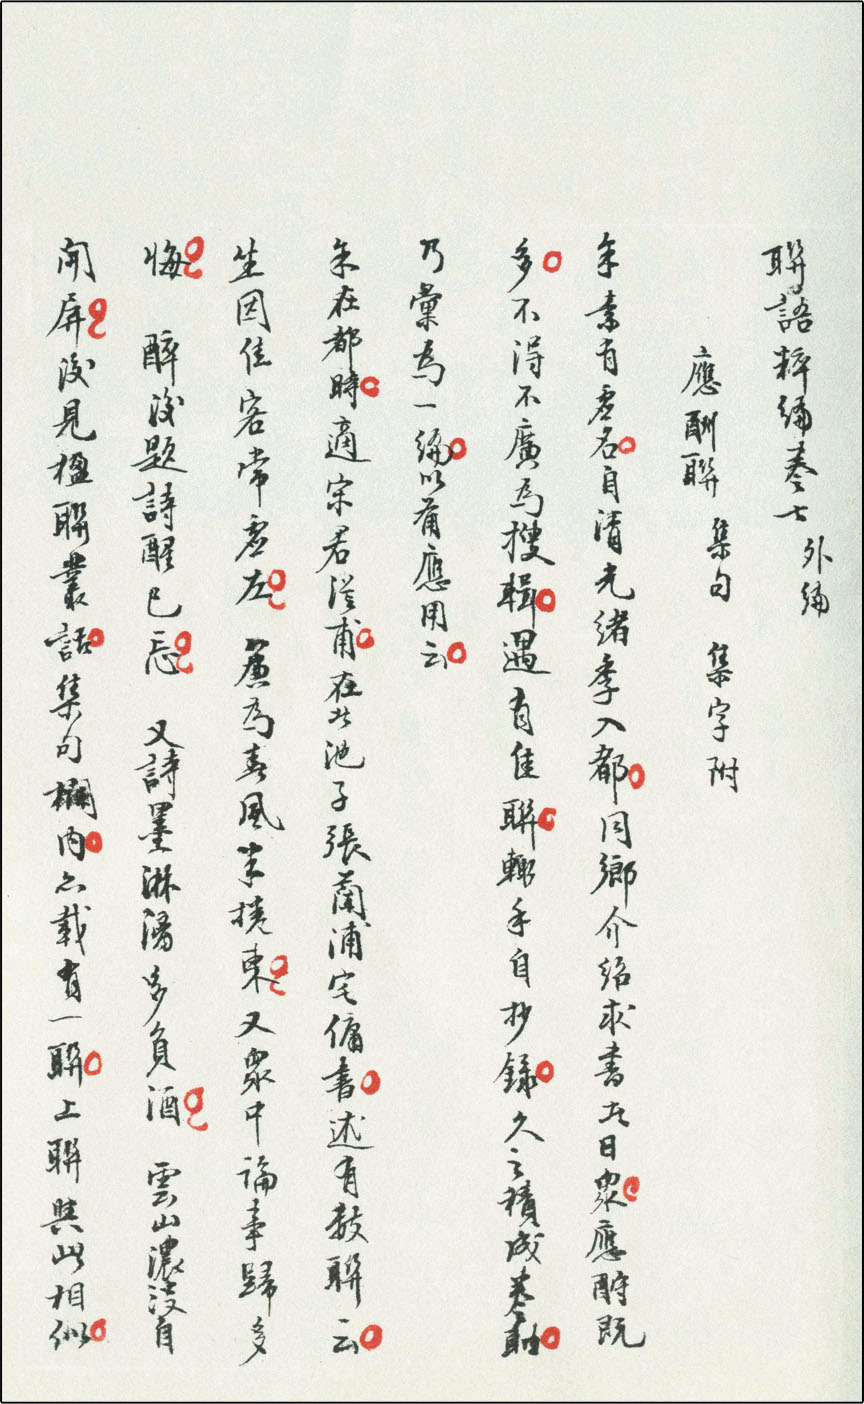 聯語粹編卷七 外編
應酬聯 集句 集字附
余素有虛名自清光緒季入都同鄉介紹求書者日眾應酬既
多不得不廣為搜輯遇有佳聯輒手自抄錄久之積成卷軸
乃彙為一編以備應用云
余在都時適宋君滋甫在北池子張蘭浦宅傭書述有數聯云
坐因佳客常虛左 簾為春風半捲東又眾中論事歸多
悔 醉後題詩醒已忘 又詩墨淋漓多負酒 雲山濃淡自
開屏後見楹聯叢話集句欄內亦載有一聯上聯與此相似